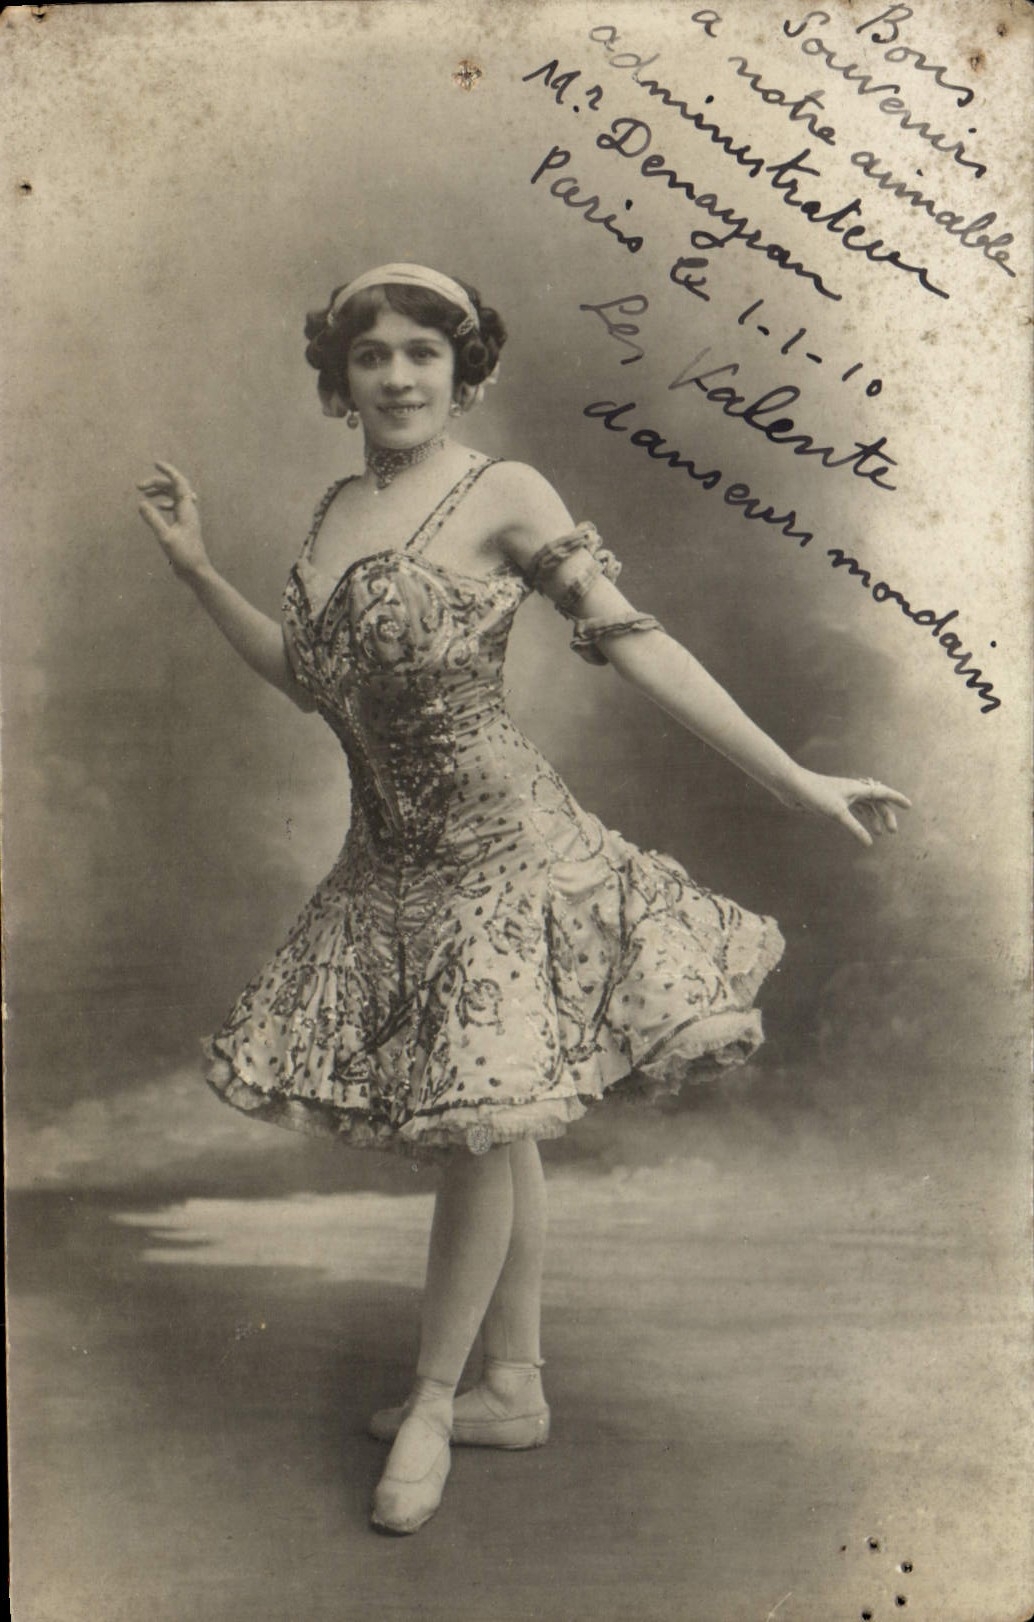 Bons
Souvenirs
a notre aimable
administrateur
Mr. Denayran
Paris le 1-1-10
Les Valente
danseurs mondains